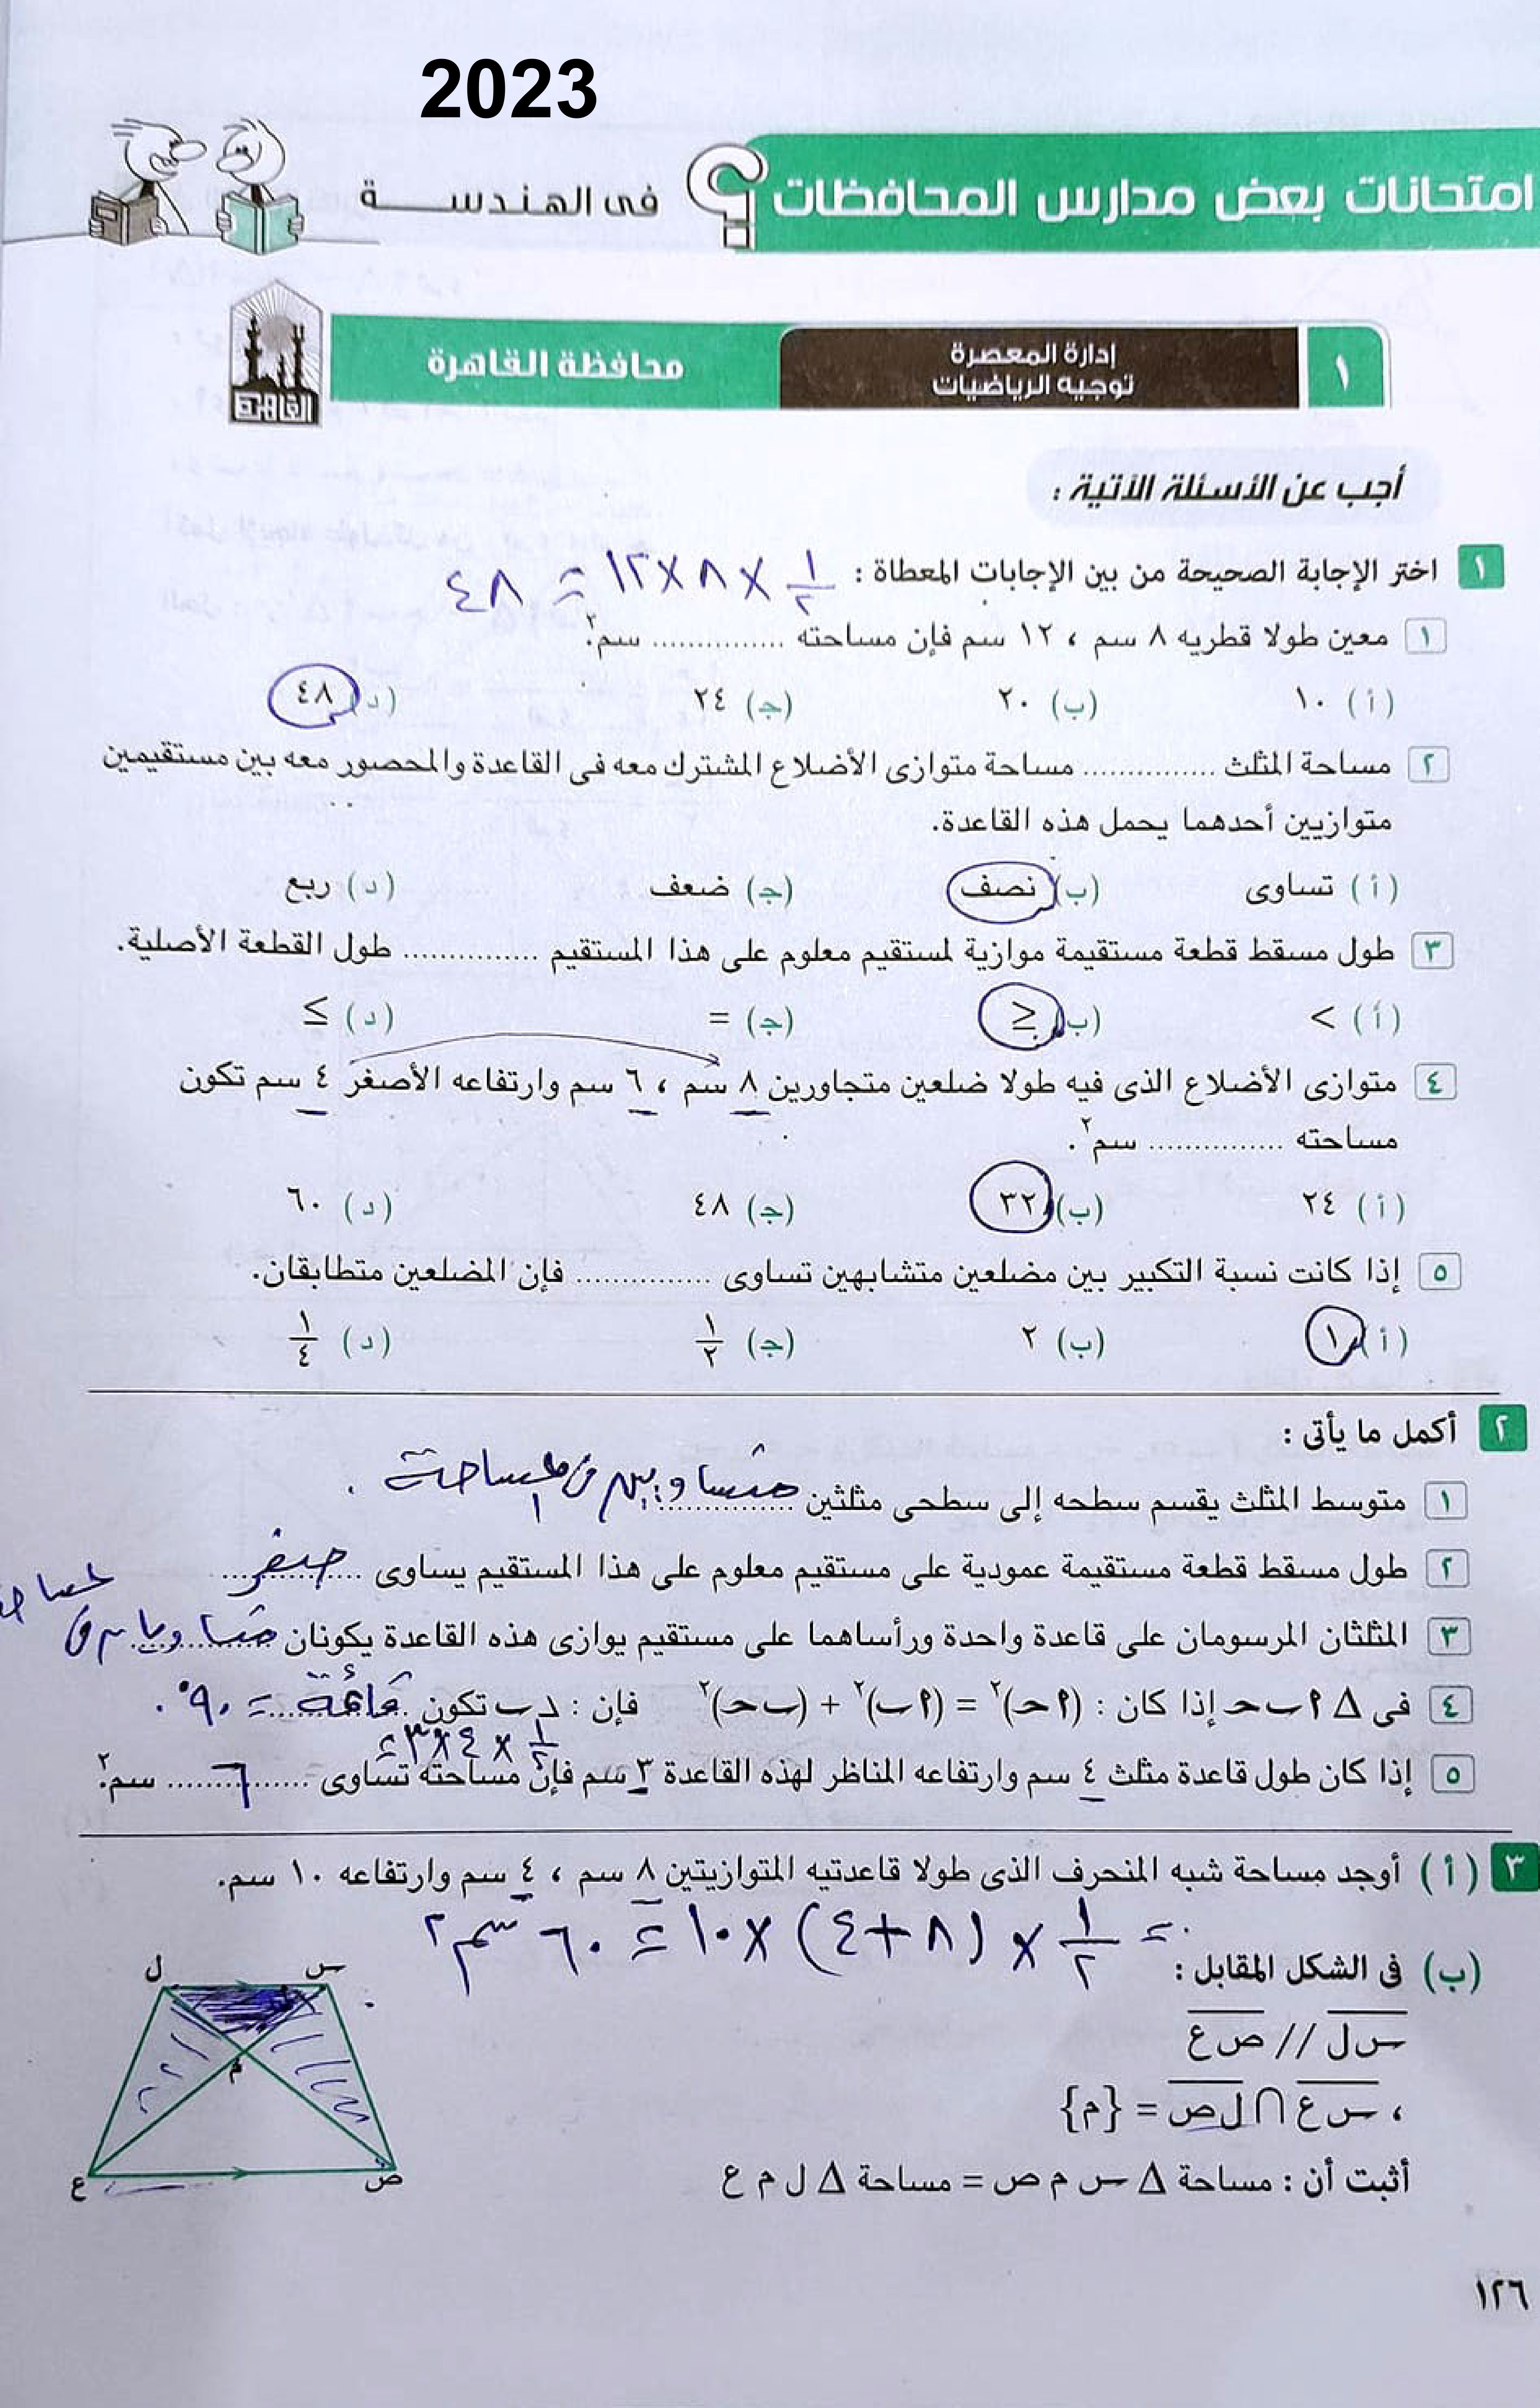 2023
امتحانات بعض مدارس المحافظات فى الهندســـة
القاهرة
١ إدارة المعصرة محافظة القاهرة
توجيه الرياضيات
أجب عن الأسئلة الآتية :
١ اختر الإجابة الصحيحة من بين الإجابات المعطاة : ١/٢ × ٨ × ١٢ = ٤٨
١ معين طولا قطريه ٨ سم ، ١٢ سم فإن مساحته ............... سم٢.
(أ) ١٠ (ب) ٢٠ (ج) ٢٤ (د) ٤٨
٢ مساحة المثلث ............... مساحة متوازى الأضلاع المشترك معه فى القاعدة والمحصور معه بين مستقيمين
متوازيين أحدهما يحمل هذه القاعدة.
(أ) تساوى (ب) نصف (ج) ضعف (د) ربع
٣ طول مسقط قطعة مستقيمة موازية لمستقيم معلوم على هذا المستقيم ............... طول القطعة الأصلية.
(أ) < (ب) ≤ (ج) = (د) ≥
٤ متوازى الأضلاع الذى فيه طولا ضلعين متجاورين ٨ سم ، ٦ سم وارتفاعه الأصغر ٤ سم تكون
مساحته ............... سم٢.
(أ) ٢٤ (ب) ٣٢ (ج) ٤٨ (د) ٦٠
٥ إذا كانت نسبة التكبير بين مضلعين متشابهين تساوى ............... فإن المضلعين متطابقان.
(أ) ١ (ب) ٢ (ج) ١/٢ (د) ١/٤
٢ أكمل ما يأتى :
١ متوسط المثلث يقسم سطحه إلى سطحى مثلثين متساويين فى المساحة .
٢ طول مسقط قطعة مستقيمة عمودية على مستقيم معلوم على هذا المستقيم يساوى صفر
٣ المثلثان المرسومان على قاعدة واحدة ورأساهما على مستقيم يوازى هذه القاعدة يكونان متساويان فى
٤ فى Δ ا ب حـ إذا كان : (ا حـ)٢ = (ا ب)٢ + (ب حـ)٢ فإن : ∠ ب تكون قائمة = ٩٠° .
١/٢ × ٤ × ٣ =
٥ إذا كان طول قاعدة مثلث ٤ سم وارتفاعه المناظر لهذه القاعدة ٣ سم فإن مساحته تساوى ٦ سم٢.
٣ (أ) أوجد مساحة شبه المنحرف الذى طولا قاعدتيه المتوازيتين ٨ سم ، ٤ سم وارتفاعه ١٠ سم.
= ١/٢ × (٨ + ٤) × ١٠ = ٦٠ سم٢
(ب) فى الشكل المقابل :
س ل // ص ع
، س ع ∩ ل ص = {م}
أثبت أن : مساحة Δ س م ص = مساحة Δ ل م ع
س ل
م
ص ع
١٢٦